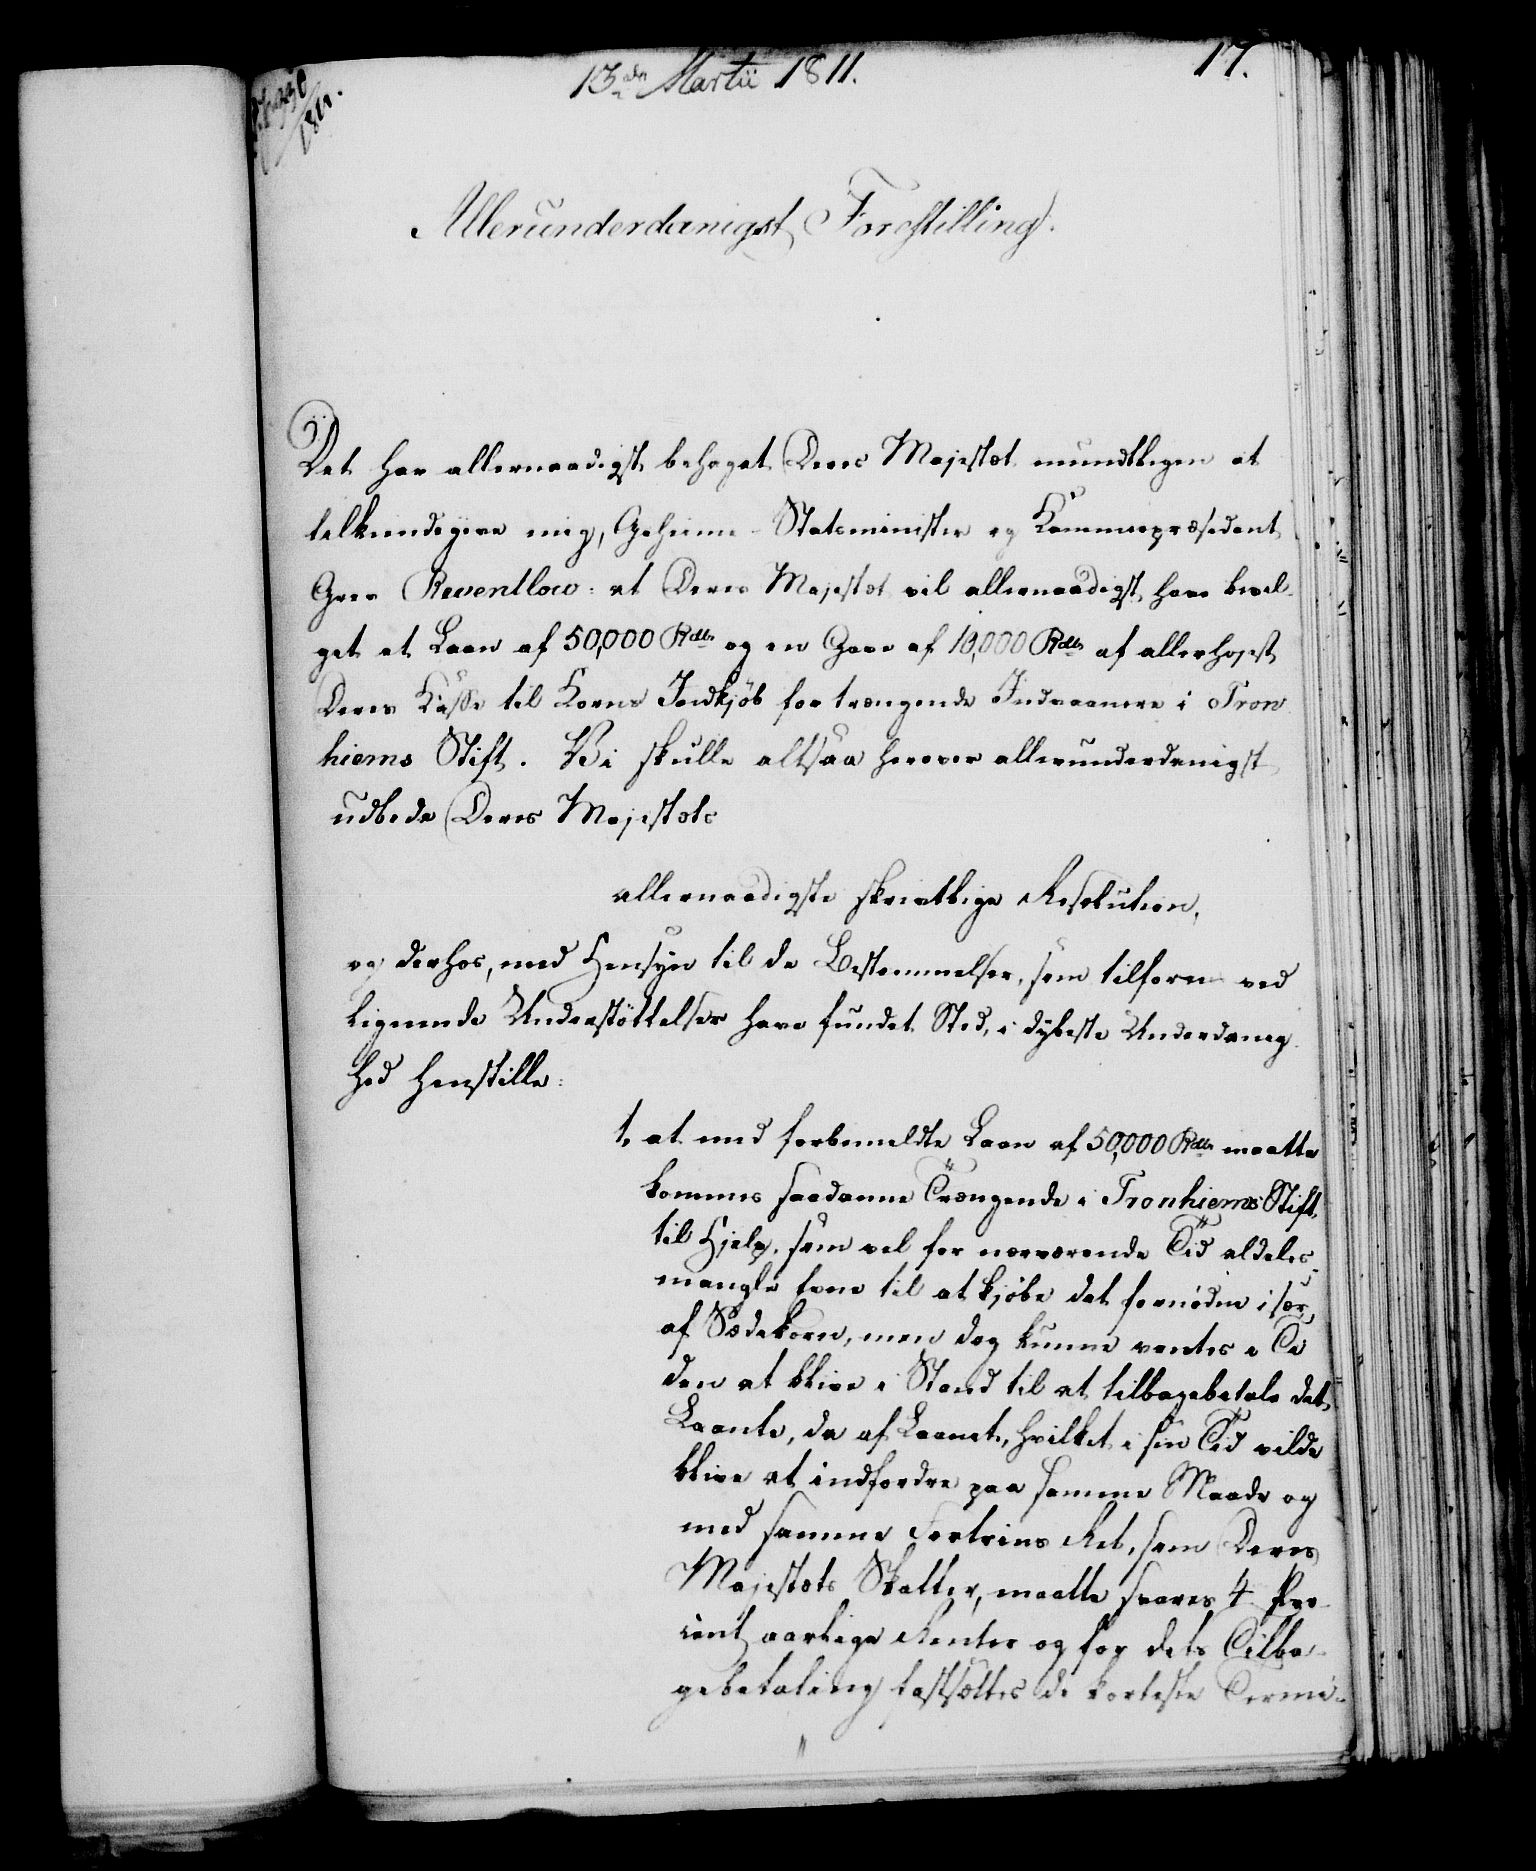 13de Martii 1811.
17.
1811.
Allerunderdanigst Forestilling.
Det har allernaadigst behaget Deres Majestæt mundtligen at
tilkiendegive mig, Geheime-Statsminister og Kammerpræsident
Greve Reventlow: at Deres Majestæt vil allernaadigst have bevil-
get et Laan af 50,000 Rdlr og en Gave af 10,000 Rdlr af allerhøjest
Deres Kasse til Korns Indkjøb for trængende Indvaanere i Tron
hiems Stift. Vi skulle altsaa herover allerunderdanigst
udbede Deres Majestæts
allernaadigste skrivtlige Resolution,
og derhos, med Hensyn til de Bestemmelser, som tilforn ved
lignende Understøttelser have fundet Sted, i dybeste Underdanig-
hed henstille:
1, at med forbemeldte Laan af 50,000 Rdlr maatte
kommes saadanne Trængende i Tronhiems Stift
til Hjelp, som vel for nærværende Tid aldeles
mangle Evne til at kjøbe det fornødne især
af Sædekorn, men dog kunne ventes i Ti
den at blive i Stand til at tilbagebetale det
Laante, da af Laanet, hvilket i sin Tid vilde
blive at indfordre paa samme Maade og
med samme Fortrins Ret, som Deres
Majestæts Skatter, maatte svares 4 Pro-
cent aarlige Renter og for dets Tilba-
gebetaling fastsættes de korteste Termi-